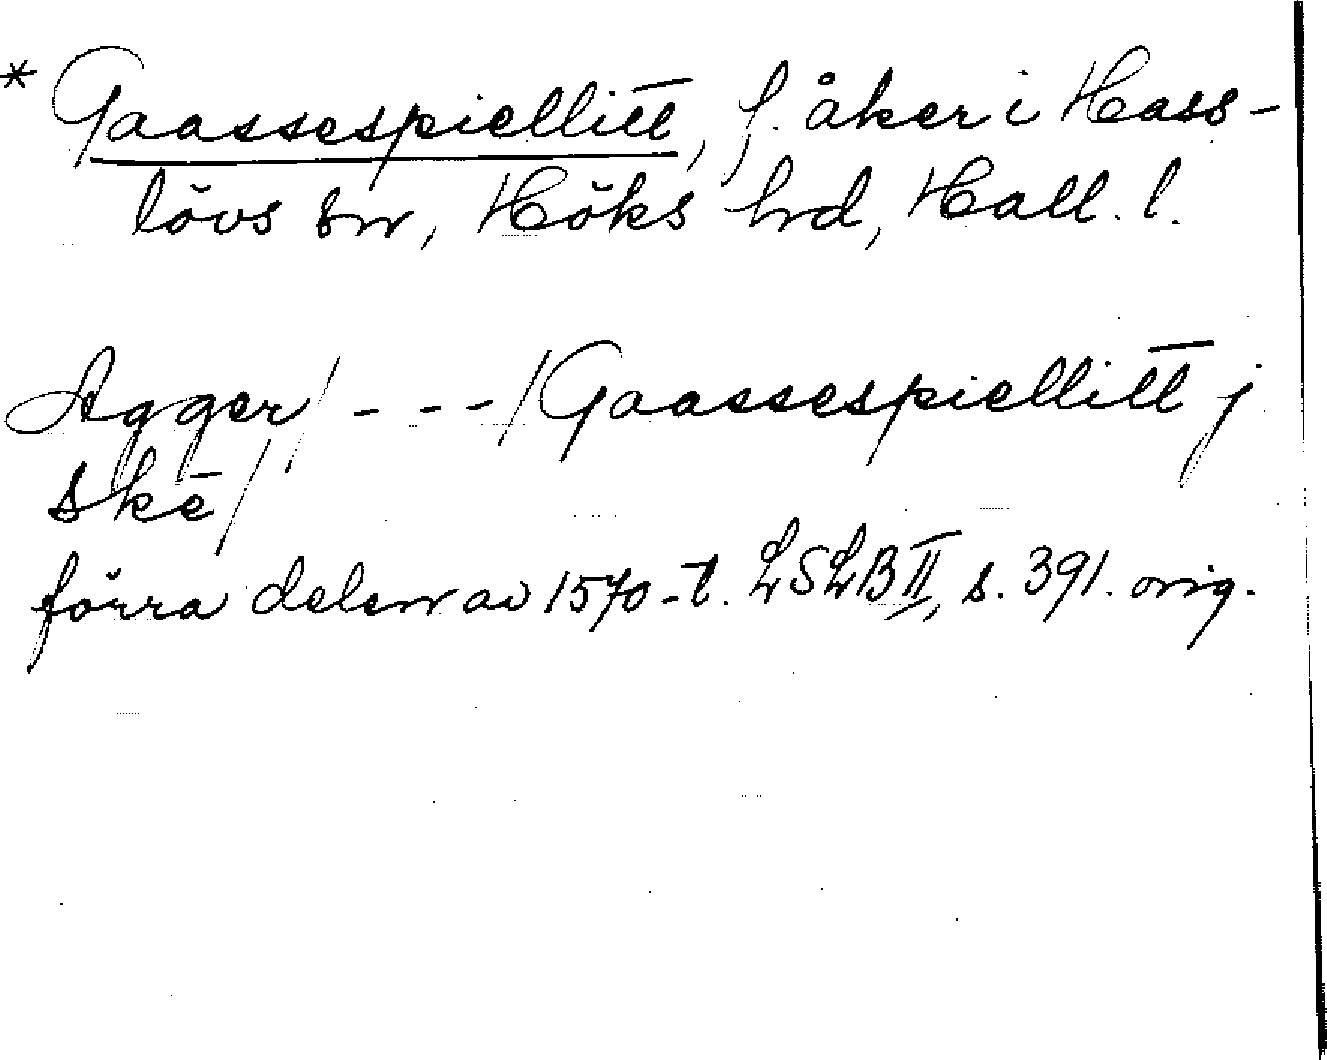 * Gaassespiellitt, f. åker i Hass-
lövs sn, Höks hd, Hall. l.
Agger/ - - -/Gaassespiellitt j
skē/
förra delen av 1570-t. LSLB II, s. 391. orig.